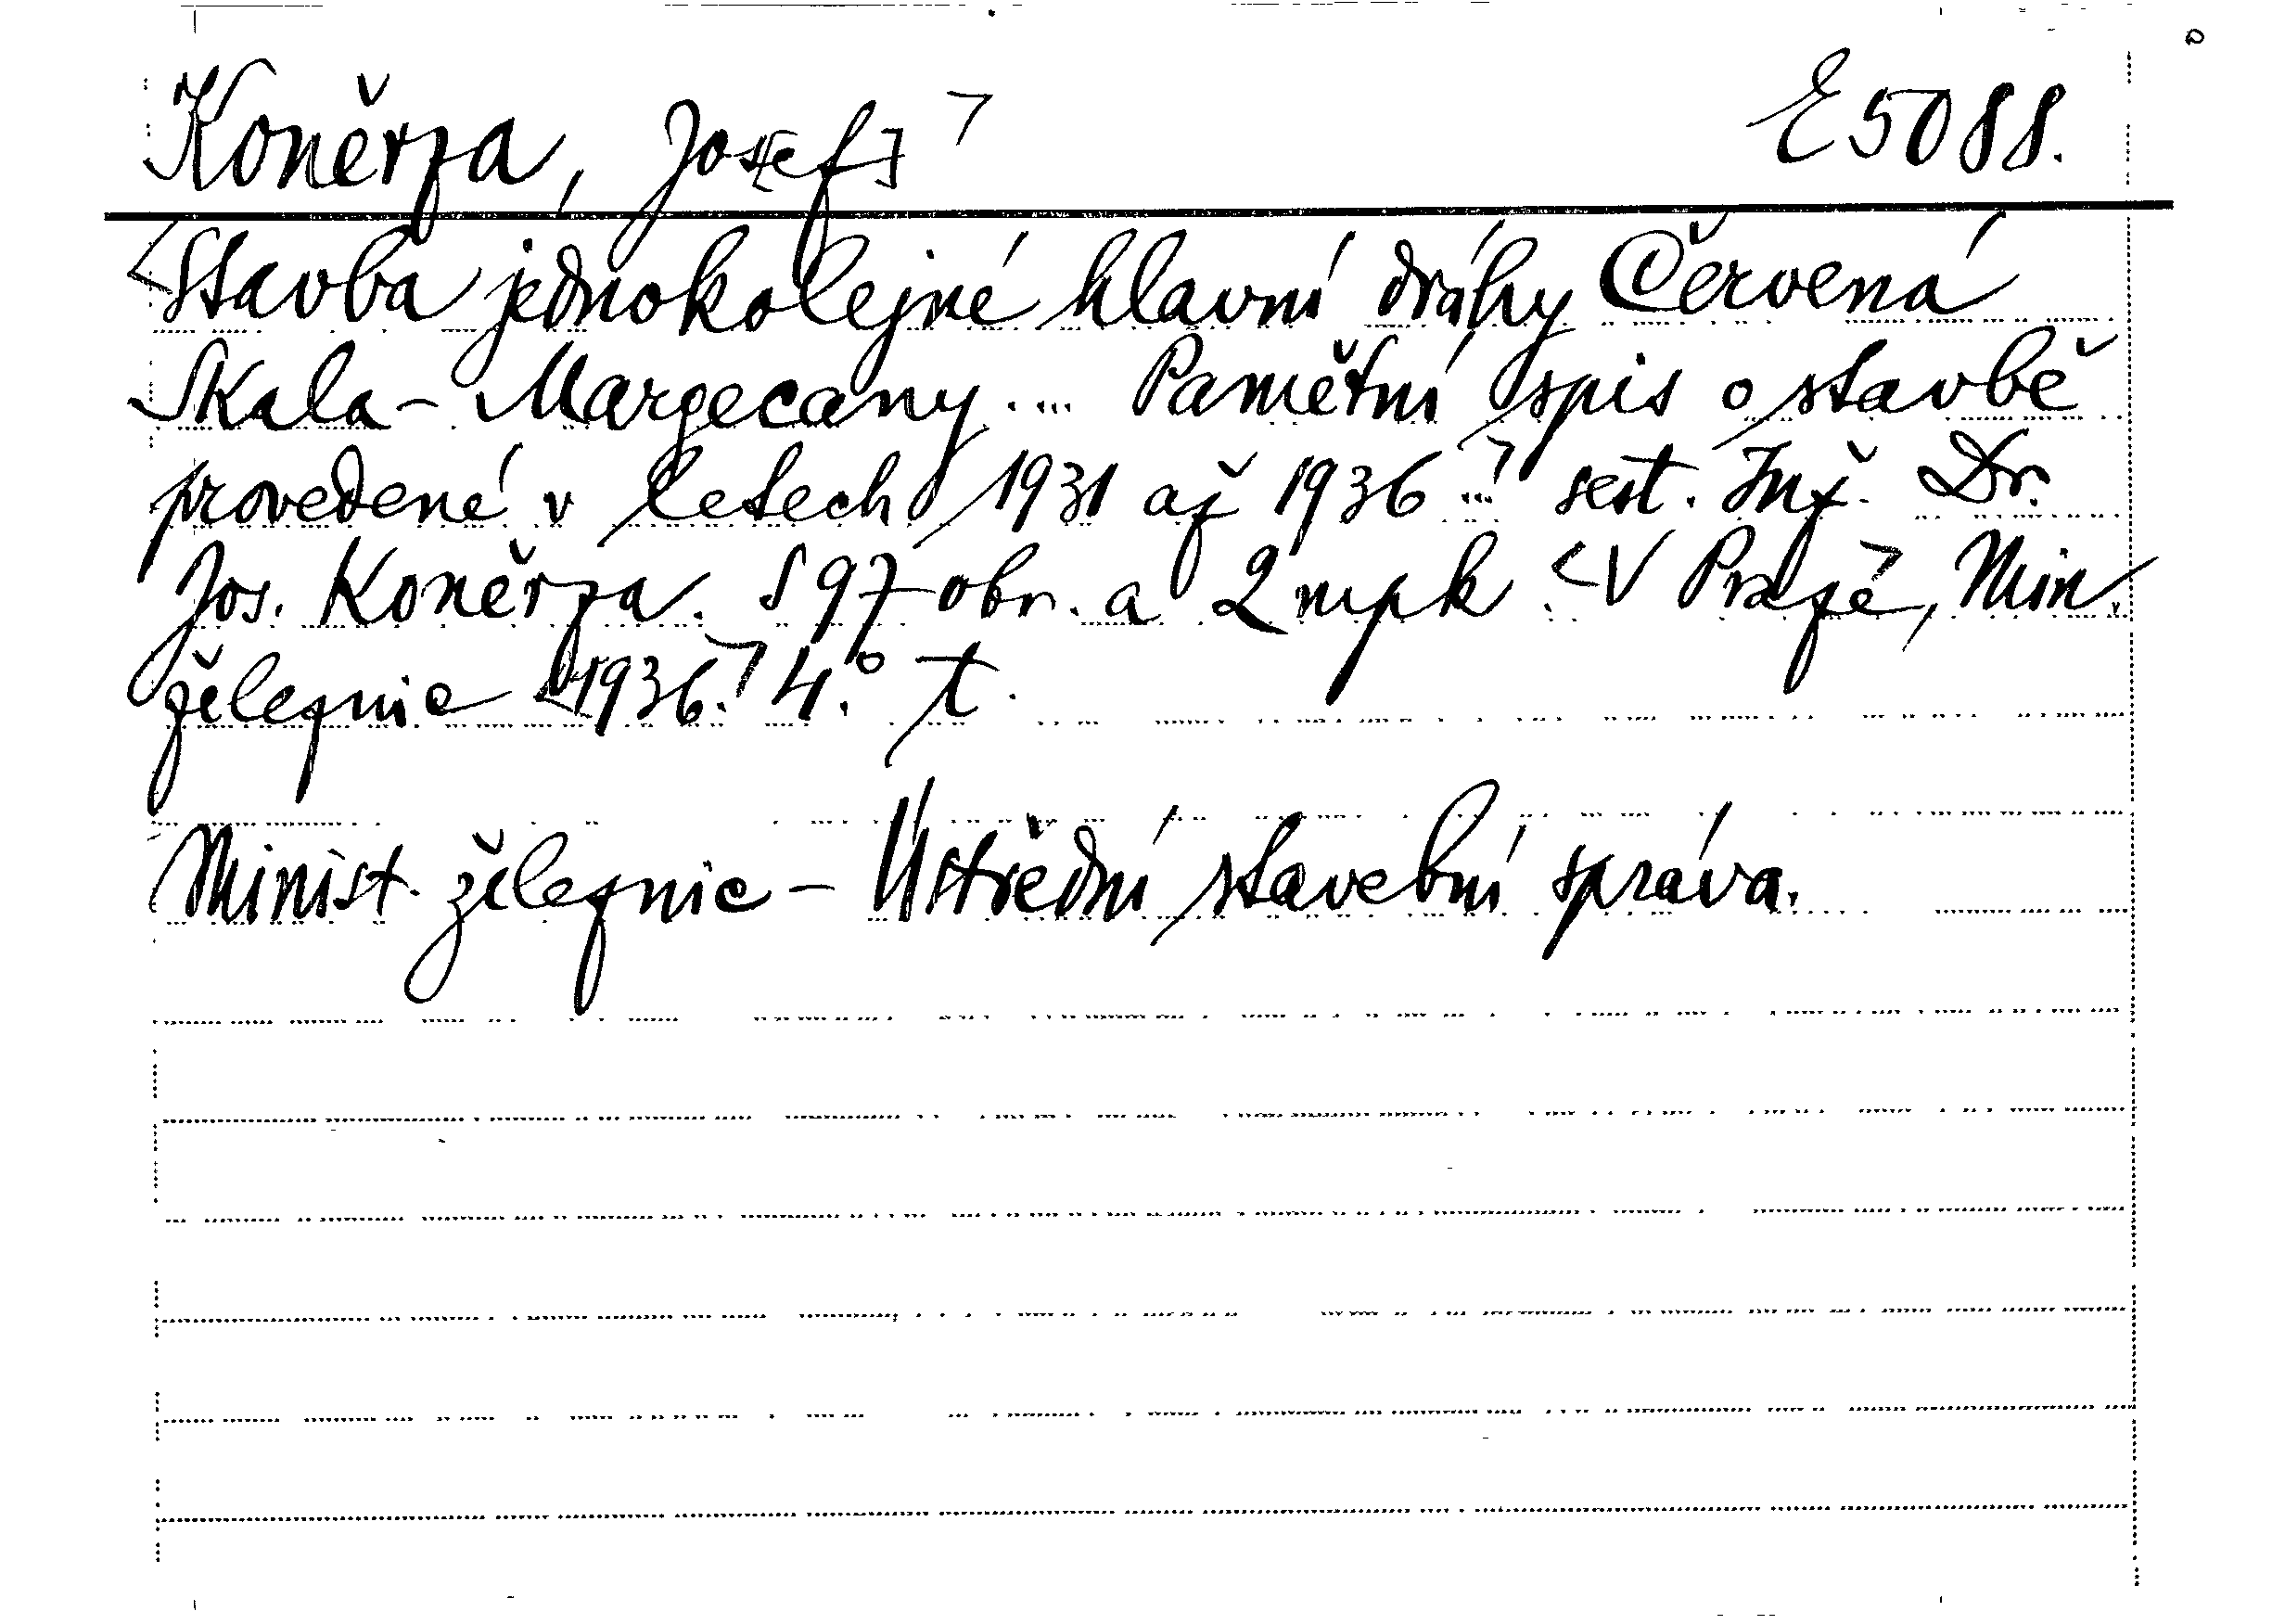 Koněrza, Jos[ef] E 5088.
Stavba jednokolejné hlavní dráhy Červená
Skala - Margecany.... Pamětní spis o stavbě
provedené v letech 1931 až 1936... sest. Inž. Dr.
Jos. Koněrza. S 97 obr. a 2 mpk. V Praze, Min.
železnic 1936. 4.° t.
Minist. železnic - Ústřední stavební správa.